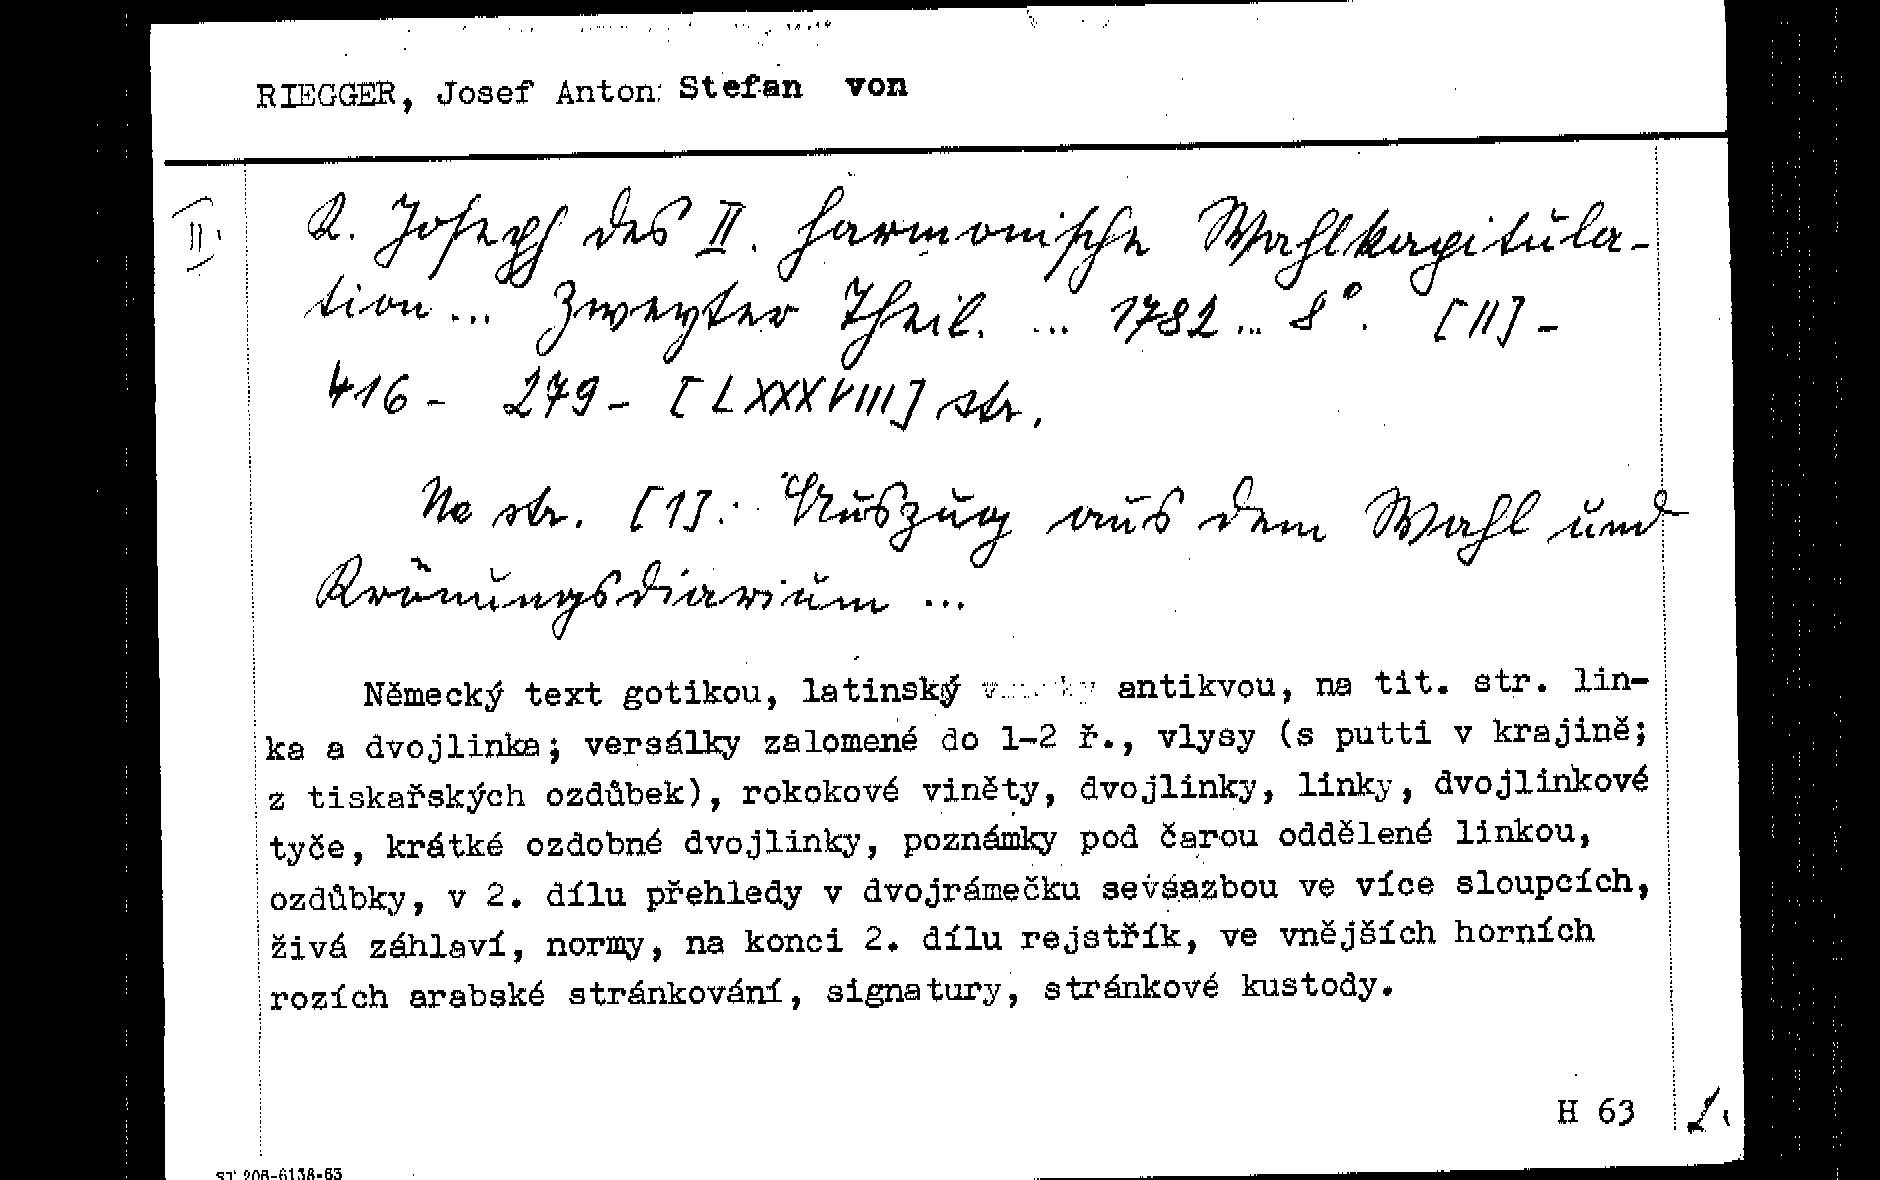 RIEGGER, Josef Anton Stefan von
II.
K. Joseph des II. harmonische Wahlkapitula-
tion ... Zweyter Theil. ... 1782 ... 8°. [II] -
416 - 279 - [LXXXVIII] str.
Na str. [1]: Auszug aus dem Wahl und
Krönungsdiarium ...
Německý text gotikou, latinský antikvou, na tit. str. lin-
ka a dvojlinka; versálky zalomené do 1-2 ř., vlysy (s putti v krajině;
z tiskařských ozdůbek), rokokové viněty, dvojlinky, linky, dvojlinkové
tyče, krátké ozdobné dvojlinky, poznámky pod čarou oddělené linkou,
ozdůbky, v 2. dílu přehledy v dvojrámečku se sazbou ve více sloupcích,
živá záhlaví, normy, na konci 2. dílu rejstřík, ve vnějších horních
rozích arabské stránkování, signatury, stránkové kustody.
H 63
2.
ST 206-6138-63